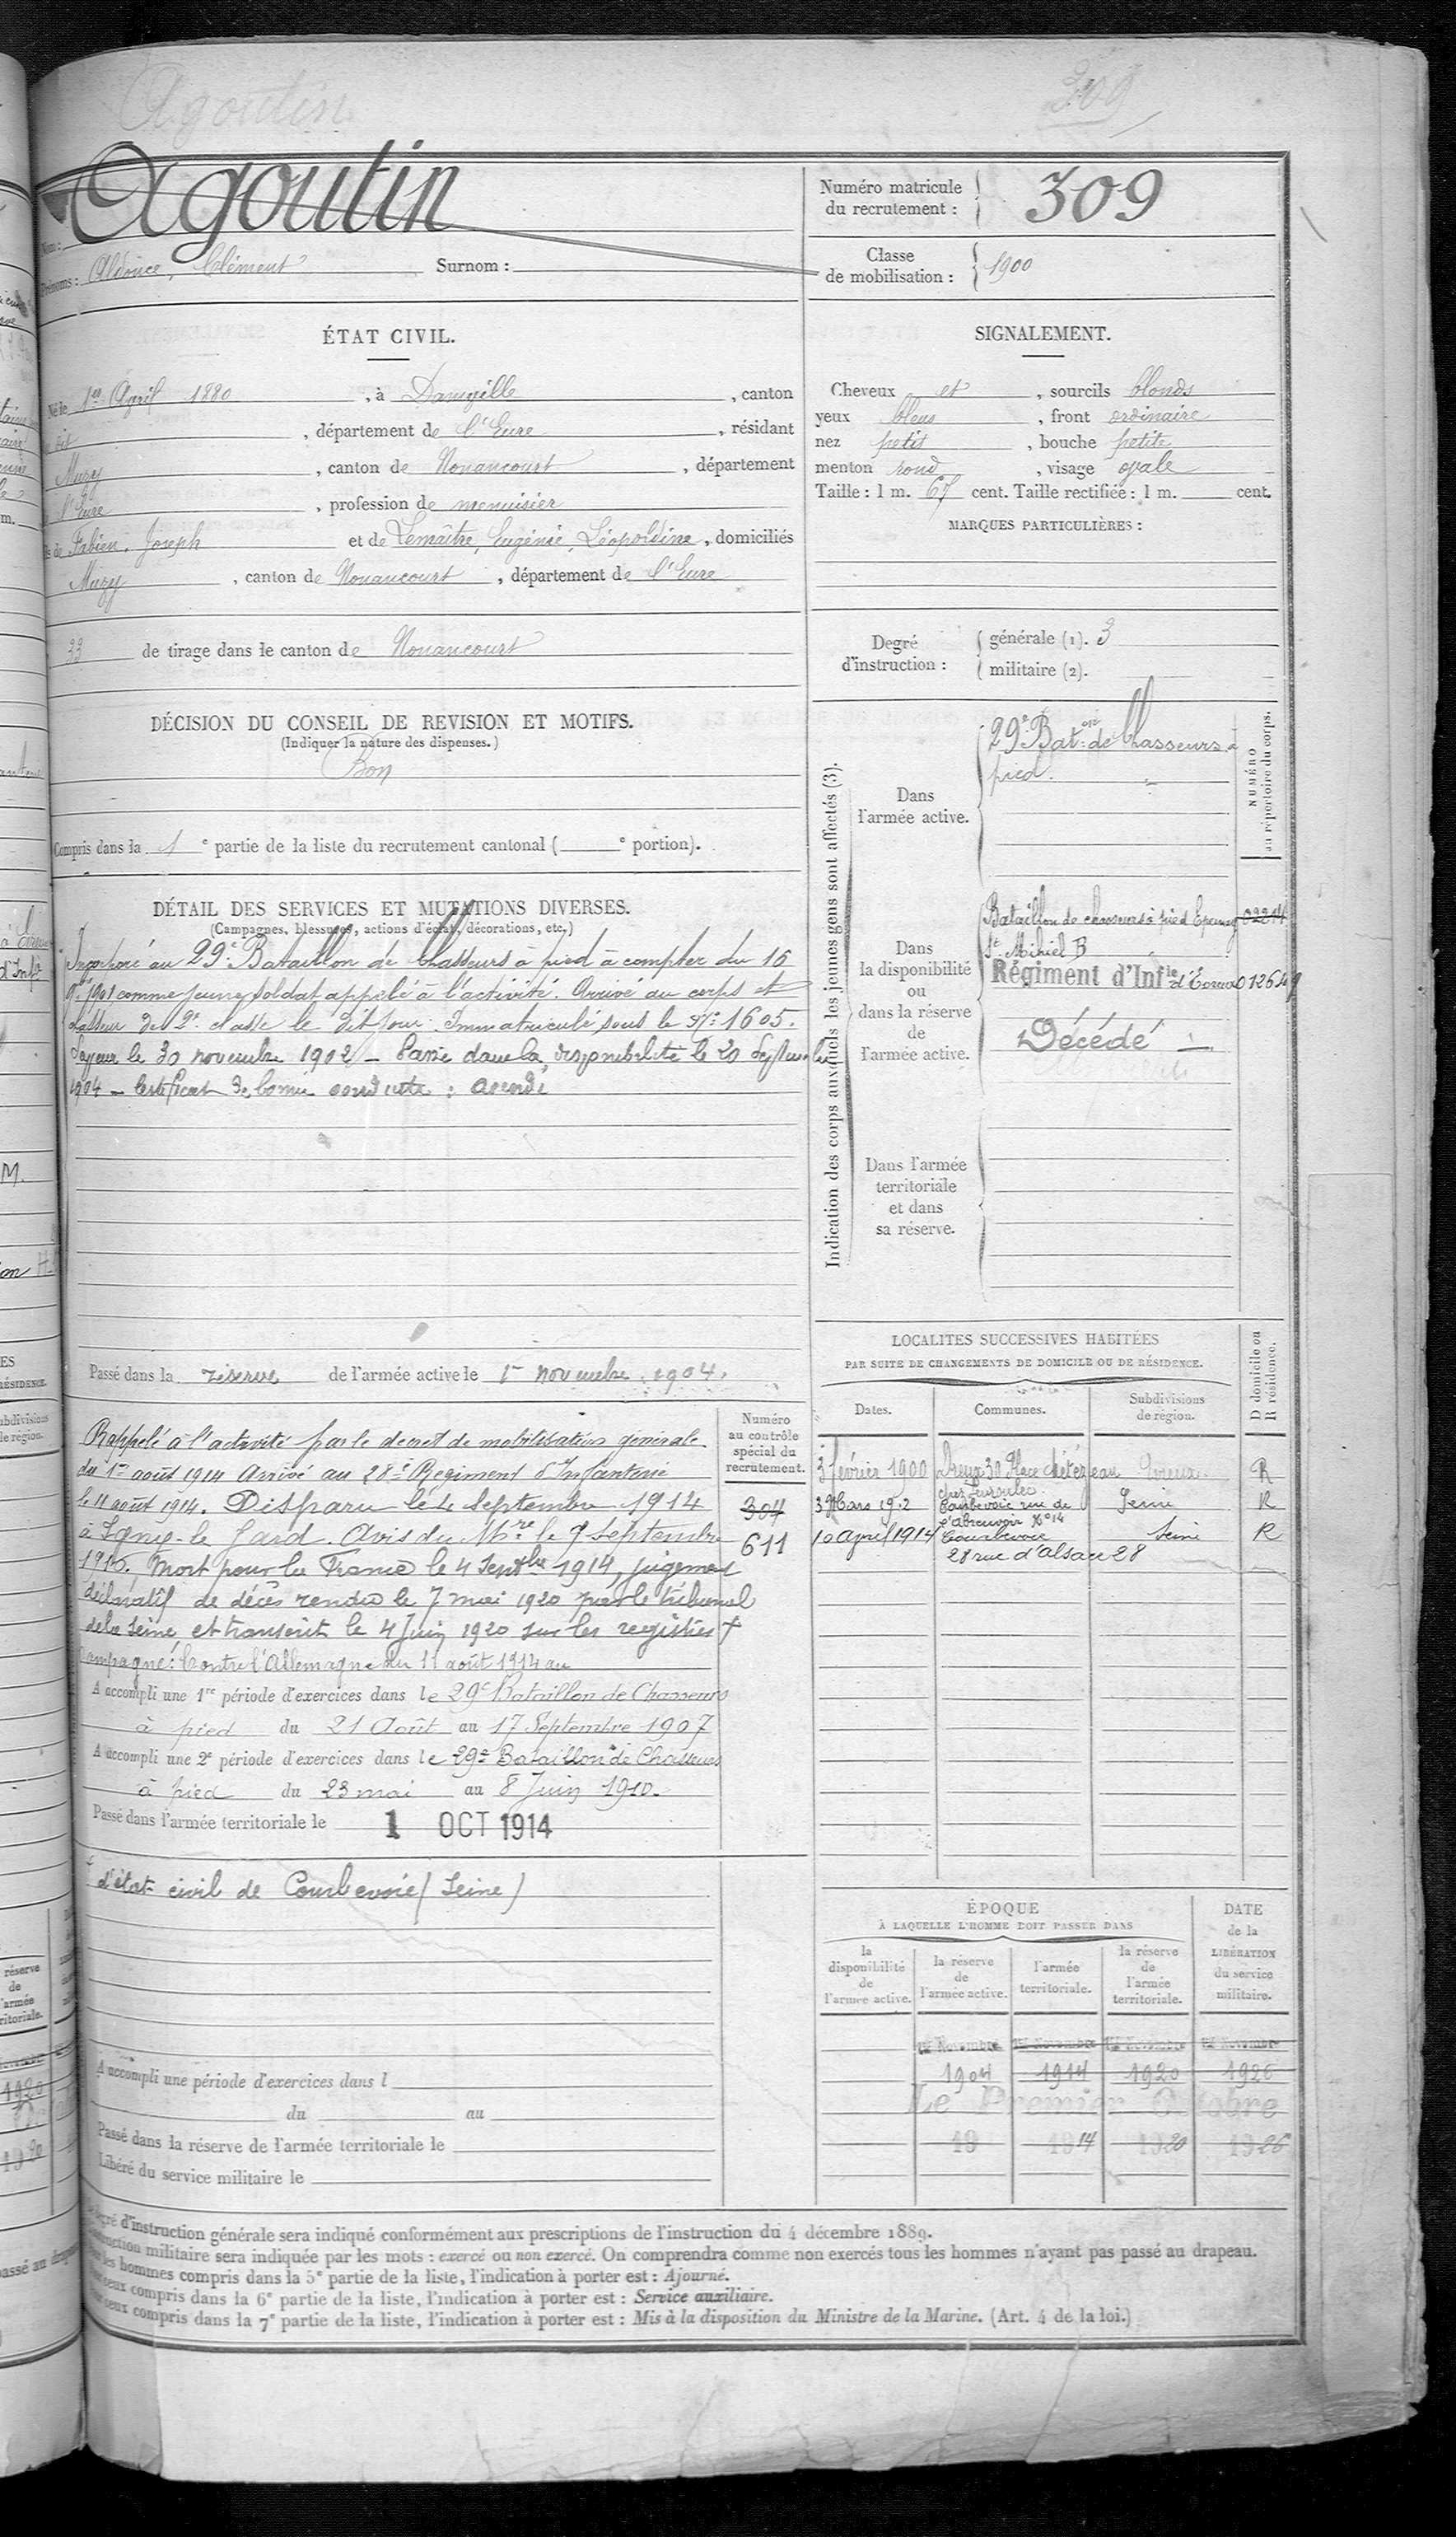 Agoutin
309
Agoutin
Numéro matricule
du recrutement :
309
Nom :
Prénoms : Clément Surnom :
Classe
de mobilisation : 1900
ÉTAT CIVIL.
Né le 1er Avril 1880, à Damville, canton
dudit, département de l'Eure, résidant
Muzy, canton de Nonancourt, département
l'Eure, profession de menuisier
fils de Fabien, Joseph et de Lemaître, Eugénie, Léopoldine, domiciliés
Muzy, canton de Nonancourt, département de l'Eure
33 de tirage dans le canton de Nonancourt
SIGNALEMENT.
Cheveux et, sourcils blonds
yeux bleus, front ordinaire
nez petit, bouche petite
menton rond, visage ovale
Taille : 1 m. 67 cent. Taille rectifiée : 1 m. cent.
MARQUES PARTICULIÈRES :
Degré
d'instruction :
générale (1). 3
militaire (2).
DÉCISION DU CONSEIL DE REVISION ET MOTIFS.
(Indiquer la nature des dispenses.)
Bon
Compris dans la 1e partie de la liste du recrutement cantonal ( e portion).
DÉTAIL DES SERVICES ET MUTATIONS DIVERSES.
(Campagnes, blessures, actions d'éclat, décorations, etc.)
Incorporé au 29e Bataillon de Chasseurs à pied à compter du 16
9bre 1901 comme jeune soldat appelé à l'activité. Arrivé au corps et
chasseur de 2e classe le dit jour. Immatriculé sous le No 1605.
le 30 novembre 1902 - Passé dans la disponibilité le 20 Septembre
1904 - Certificat de bonne conduite : accordé
Passé dans la réserve de l'armée active le 1er novembre 1904.
Indication des corps auxquels les jeunes gens sont affectés (3).
NUMÉRO
au répertoire du corps.
Dans
l'armée active.
29e Baton de Chasseurs à
pied.
Dans
la disponibilité
ou
dans la réserve
de
l'armée active.
Bataillon de chasseurs à pied Epernay 02214
St Mihiel B
Régiment d'Infie d'Evreux 012649
Décédé
Dans l'armée
territoriale
et dans
sa réserve.
Numéro
au contrôle
spécial du
recrutement.
304
611
Rappelé à l'activité par le décret de mobilisation générale
du 1er août 1914 Arrivé au 28e Régiment d'Infanterie
le 11 août 1914. Disparu le 4 Septembre 1914
à Igny-le-Jard. Avis du Mre le 9 Septembre
1916. Mort pour la France le 4 Septbre 1914, jugement
déclaratif de décès rendu le 7 mai 1920 par le tribunal
de la Seine, et transcrit le 4 Juin 1920 sur les registres +
Campagne : Contre l'Allemagne du 11 août 1914 au
A accompli une 1re période d'exercices dans le 29e Bataillon de Chasseurs
à pied du 21 Août au 17 Septembre 1907
A accompli une 2e période d'exercices dans le 29e Bataillon de Chasseurs
à pied du 23 mai au 8 Juin 1910.
Passé dans l'armée territoriale le 1 OCT 1914
+ d'état civil de Courbevoie (Seine)
A accompli une période d'exercices dans l
du au
Passé dans la réserve de l'armée territoriale le
Libéré du service militaire le
LOCALITÉS SUCCESSIVES HABITÉES
PAR SUITE DE CHANGEMENTS DE DOMICILE OU DE RÉSIDENCE.
Dates. Communes. Subdivisions
de région.
D domicile ou
R résidence.
3 février 1900 Dreux 30 Place Evreux R
3 Mars 1912 Courbevoie rue de Seine R
l'Abreuvoir No 14
10 avril 1914 Courbevoie Seine R
28 rue d'Alsace 28
ÉPOQUE
À LAQUELLE L'HOMME DOIT PASSER DANS
DATE
de la
LIBÉRATION
du service
militaire.
la
disponibilité
de
l'armée active.
la réserve
de
l'armée active.
l'armée
territoriale.
la réserve
de
l'armée
territoriale.
1er Novembre 1er Novembre 1er Novembre 1er Novembre
1904 1914 1920 1926
Le Premier Octobre
19 1914 1920 1926
degré d'instruction générale sera indiqué conformément aux prescriptions de l'instruction du 4 décembre 1889.
instruction militaire sera indiquée par les mots : exercé ou non exercé. On comprendra comme non exercés tous les hommes n'ayant pas passé au drapeau.
les hommes compris dans la 5e partie de la liste, l'indication à porter est : Ajourné.
ceux compris dans la 6e partie de la liste, l'indication à porter est : Service auxiliaire.
ceux compris dans la 7e partie de la liste, l'indication à porter est : Mis à la disposition du Ministre de la Marine. (Art. 4 de la loi.)